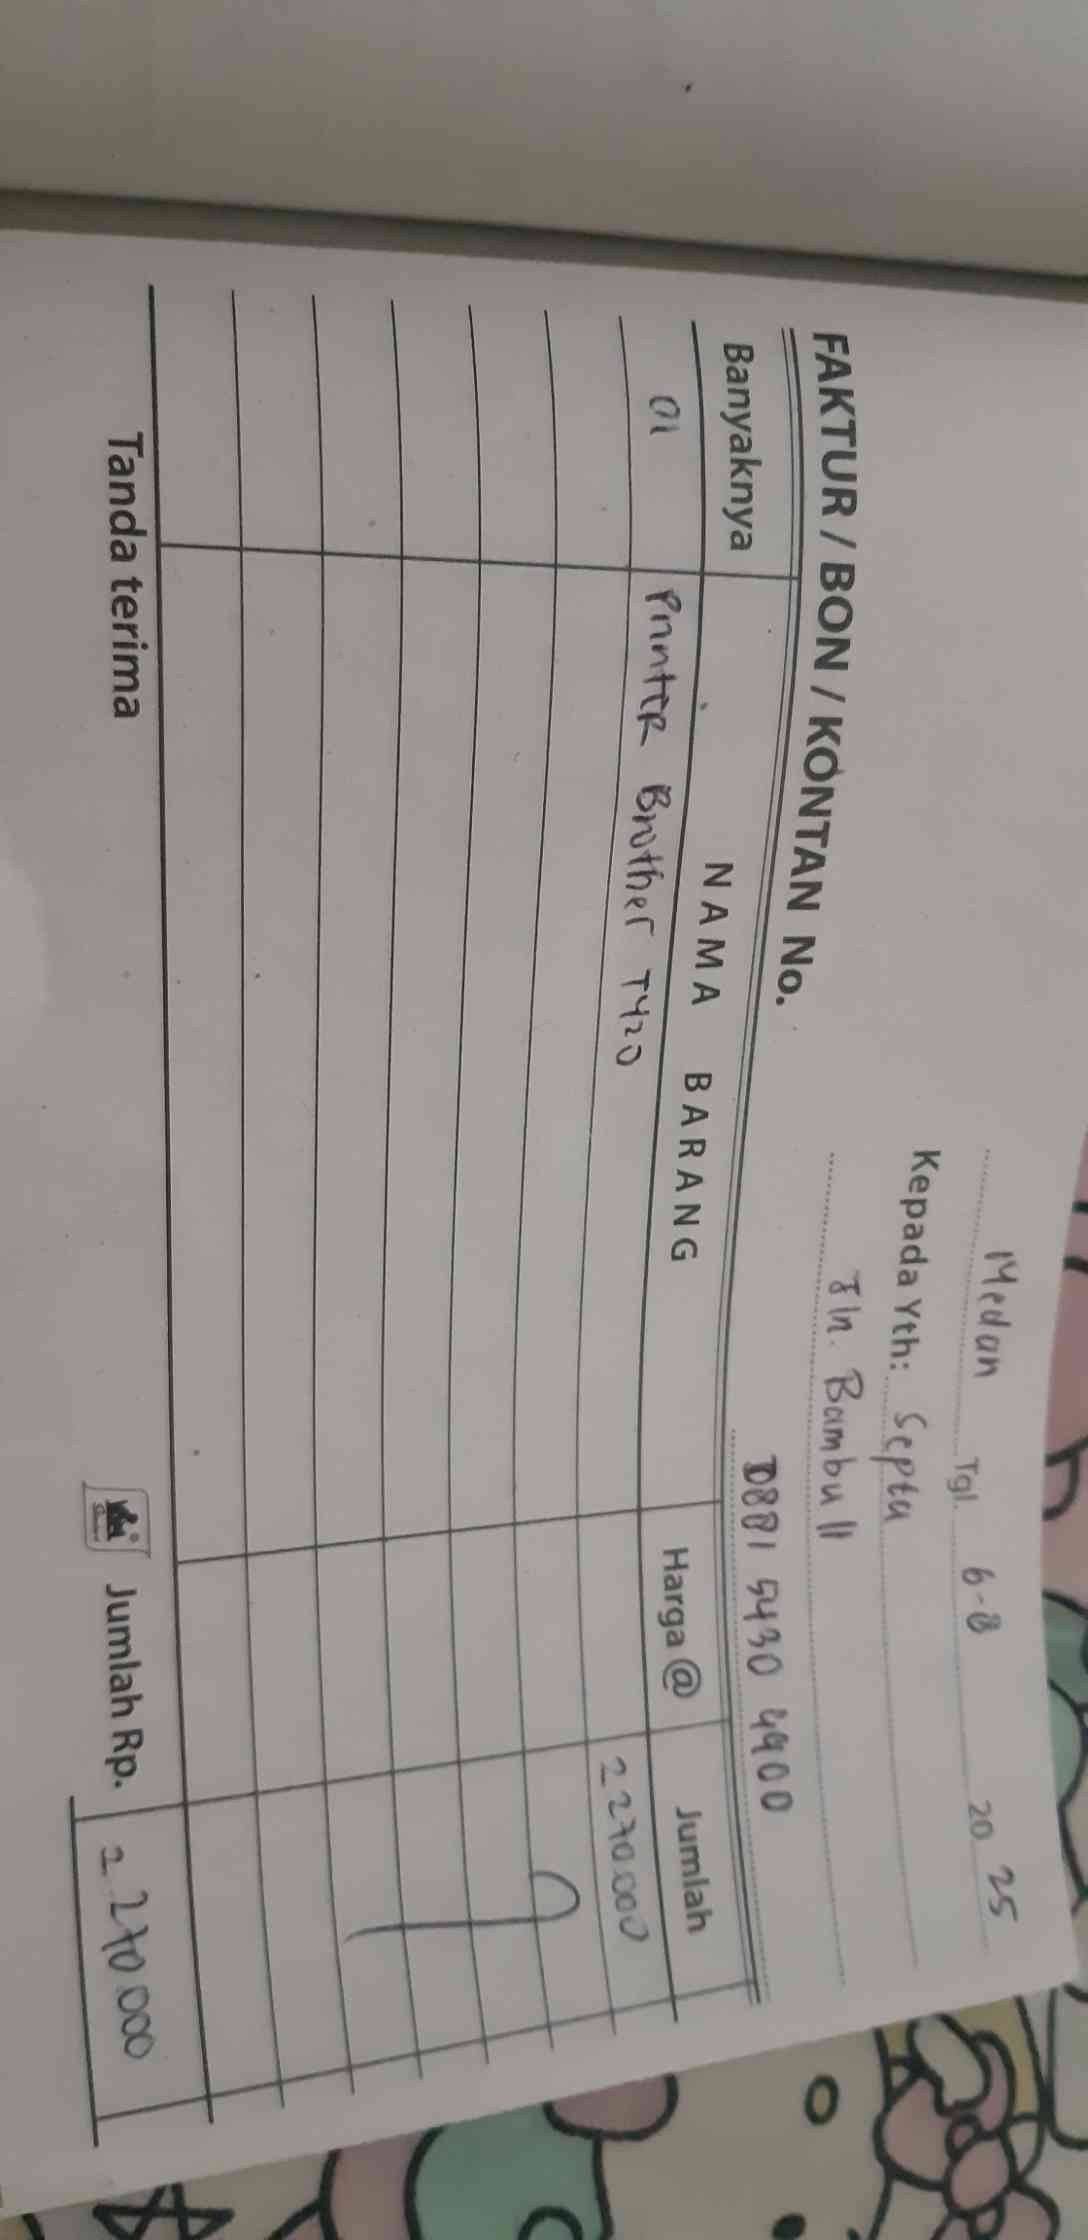 Medan Tgl. 6-8 20 25
Kepada Yth: Septa
Jln. Bambu II
0881 5430 4900
FAKTUR / BON / KONTAN No.
Banyaknya NAMA BARANG Harga @ Jumlah
01 Printer Brother T420 2270.000
Tanda terima Jumlah Rp. 2.270.000